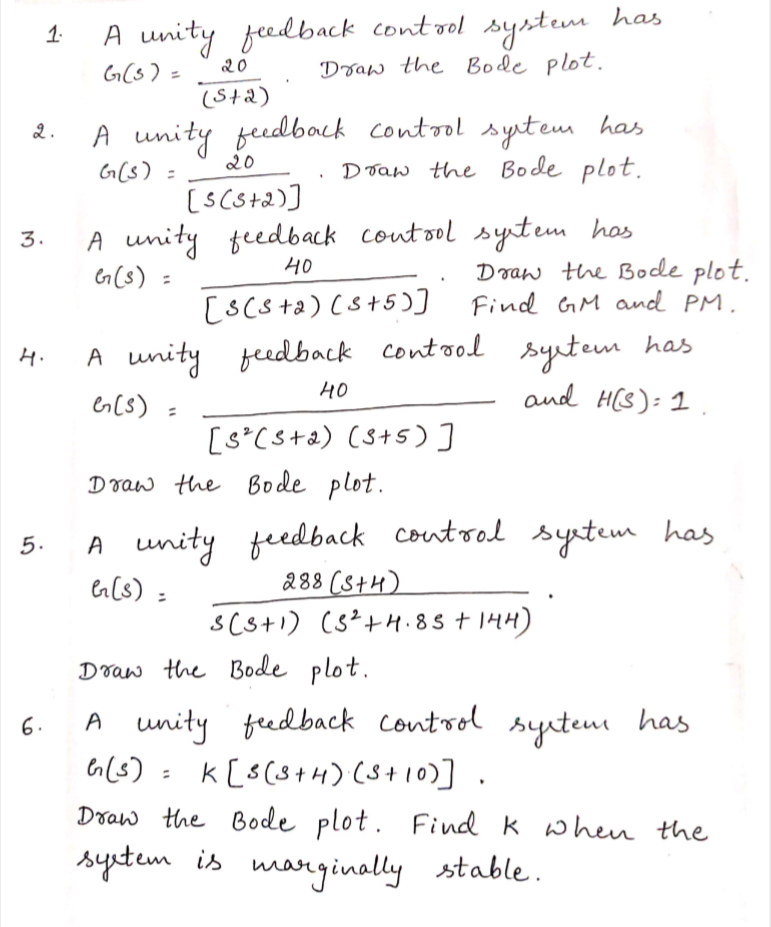 1. A unity feedback control system has
G(s) = 20 / (s+2) . Draw the Bode plot.
2. A unity feedback control system has
G(s) = 20 / [s(s+2)] . Draw the Bode plot.
3. A unity feedback control system has
G(s) = 40 / [s(s+2)(s+5)] . Draw the Bode plot.
Find GM and PM.
4. A unity feedback control system has
G(s) = 40 / [s²(s+2)(s+5)] and H(s)=1.
Draw the Bode plot.
5. A unity feedback control system has
G(s) = 288(s+4) / s(s+1)(s²+4.8s+144) .
Draw the Bode plot.
6. A unity feedback control system has
G(s) = K[s(s+4)(s+10)] .
Draw the Bode plot. Find K when the
system is marginally stable.